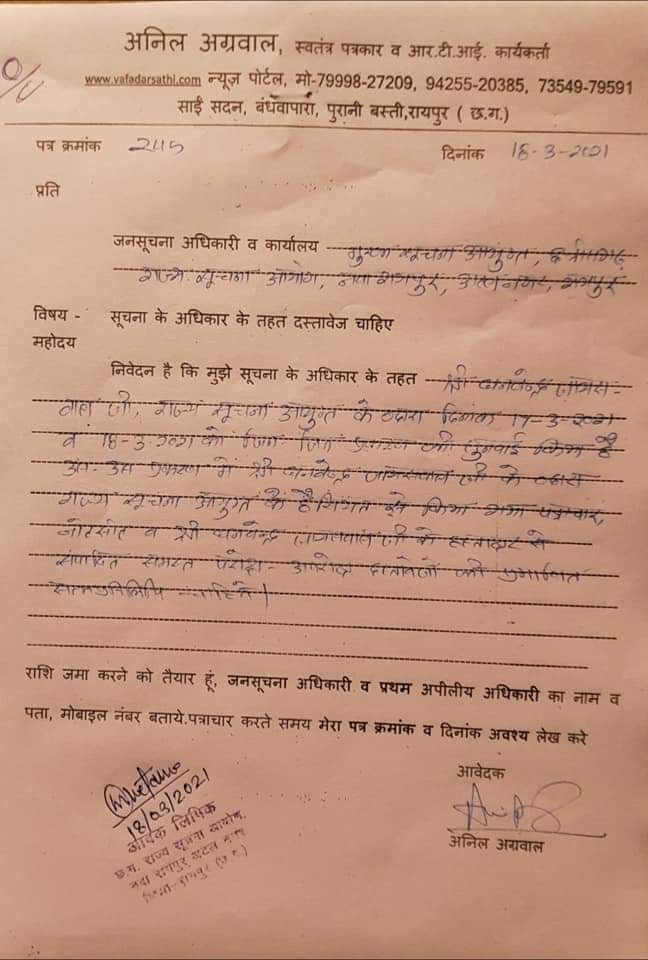 अनिल अग्रवाल, स्वतंत्र पत्रकार व आर.टी.आई. कार्यकर्ता
www.vafadarsathi.com न्यूज पोर्टल, मो-79998-27209, 94255-20385, 73549-79591
साईं सदन, बंधवापारा, पुरानी बस्ती,रायपुर ( छ.ग.)
पत्र क्रमांक
दिनांक 18-3-2021
प्रति
जनसूचना अधिकारी व कार्यालय मुख्य सूचना आयुक्त,
राज्य सूचना आयोग, नवा रायपुर, अटल नगर, रायपुर
विषय - सूचना के अधिकार के तहत दस्तावेज चाहिए
महोदय
निवेदन है कि मुझे सूचना के अधिकार के तहत श्री
जी, राज्य सूचना आयुक्त के द्वारा दिनांक 17-3-2021
व 18-3-2021 को जिन जिन प्रकरण की सुनवाई किया है
प्रकरण में श्री जी के द्वारा
राज्य सूचना आयुक्त के हैसियत से किया गया पत्राचार,
नोटसीट व श्री जी के हस्ताक्षर से
संपादित समस्त दस्तावेजों की प्रमाणित
सत्यप्रतिलिपि चाहिये।
राशि जमा करने को तैयार हूं, जनसूचना अधिकारी व प्रथम अपीलीय अधिकारी का नाम व
पता, मोबाइल नंबर बताये.पत्राचार करते समय मेरा पत्र क्रमांक व दिनांक अवश्य लेख करे
आवेदक
अनिल अग्रवाल
18/03/2021
आवक लिपिक
छ.ग. राज्य सूचना आयोग,
नवा रायपुर अटल नगर
जिला-रायपुर (छ.ग.)